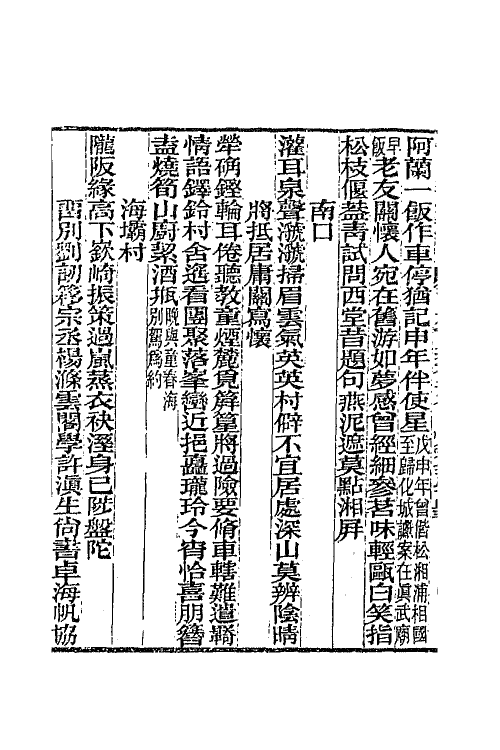 阿蘭一飯作車停猶記申年伴使星戊申年曾偕松湘浦相國至歸化城讞案在眞武廟
早飯老友關懷人宛在舊游如夢感曾經細參茗味輕甌白笑指
松枝偃葢靑試問西堂昔題句燕泥遮莫點湘屏
南口
灌耳泉聲㶁㶁掃眉雲氣英英村僻不宜居處深山莫辨陰晴
將抵居庸關寫懷
犖确鏗輪耳倦聽敎童煙麓覓箳篂將過險要脩車轄難遣羇
情語鐸鈴村舍遙看團聚落峯巒近挹矗瓏玲今宵恰喜朋簪
盍燒筍山廚絜酒瓶晚與童春海別駕爲約
海壩村
隴阪緣高下嶔崎振策過嵐蒸衣袂溼身已陟盤陀
畱別劉韌移宗丞楊滌雲閣學許滇生尙書卓海帆協